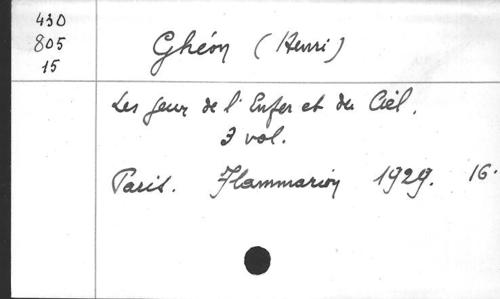 430
805
15
Ghéon (Henri)
Les Jeux de l'Enfer et du Ciel.
3 vol.
Paris. Flammarion 1929. 16.